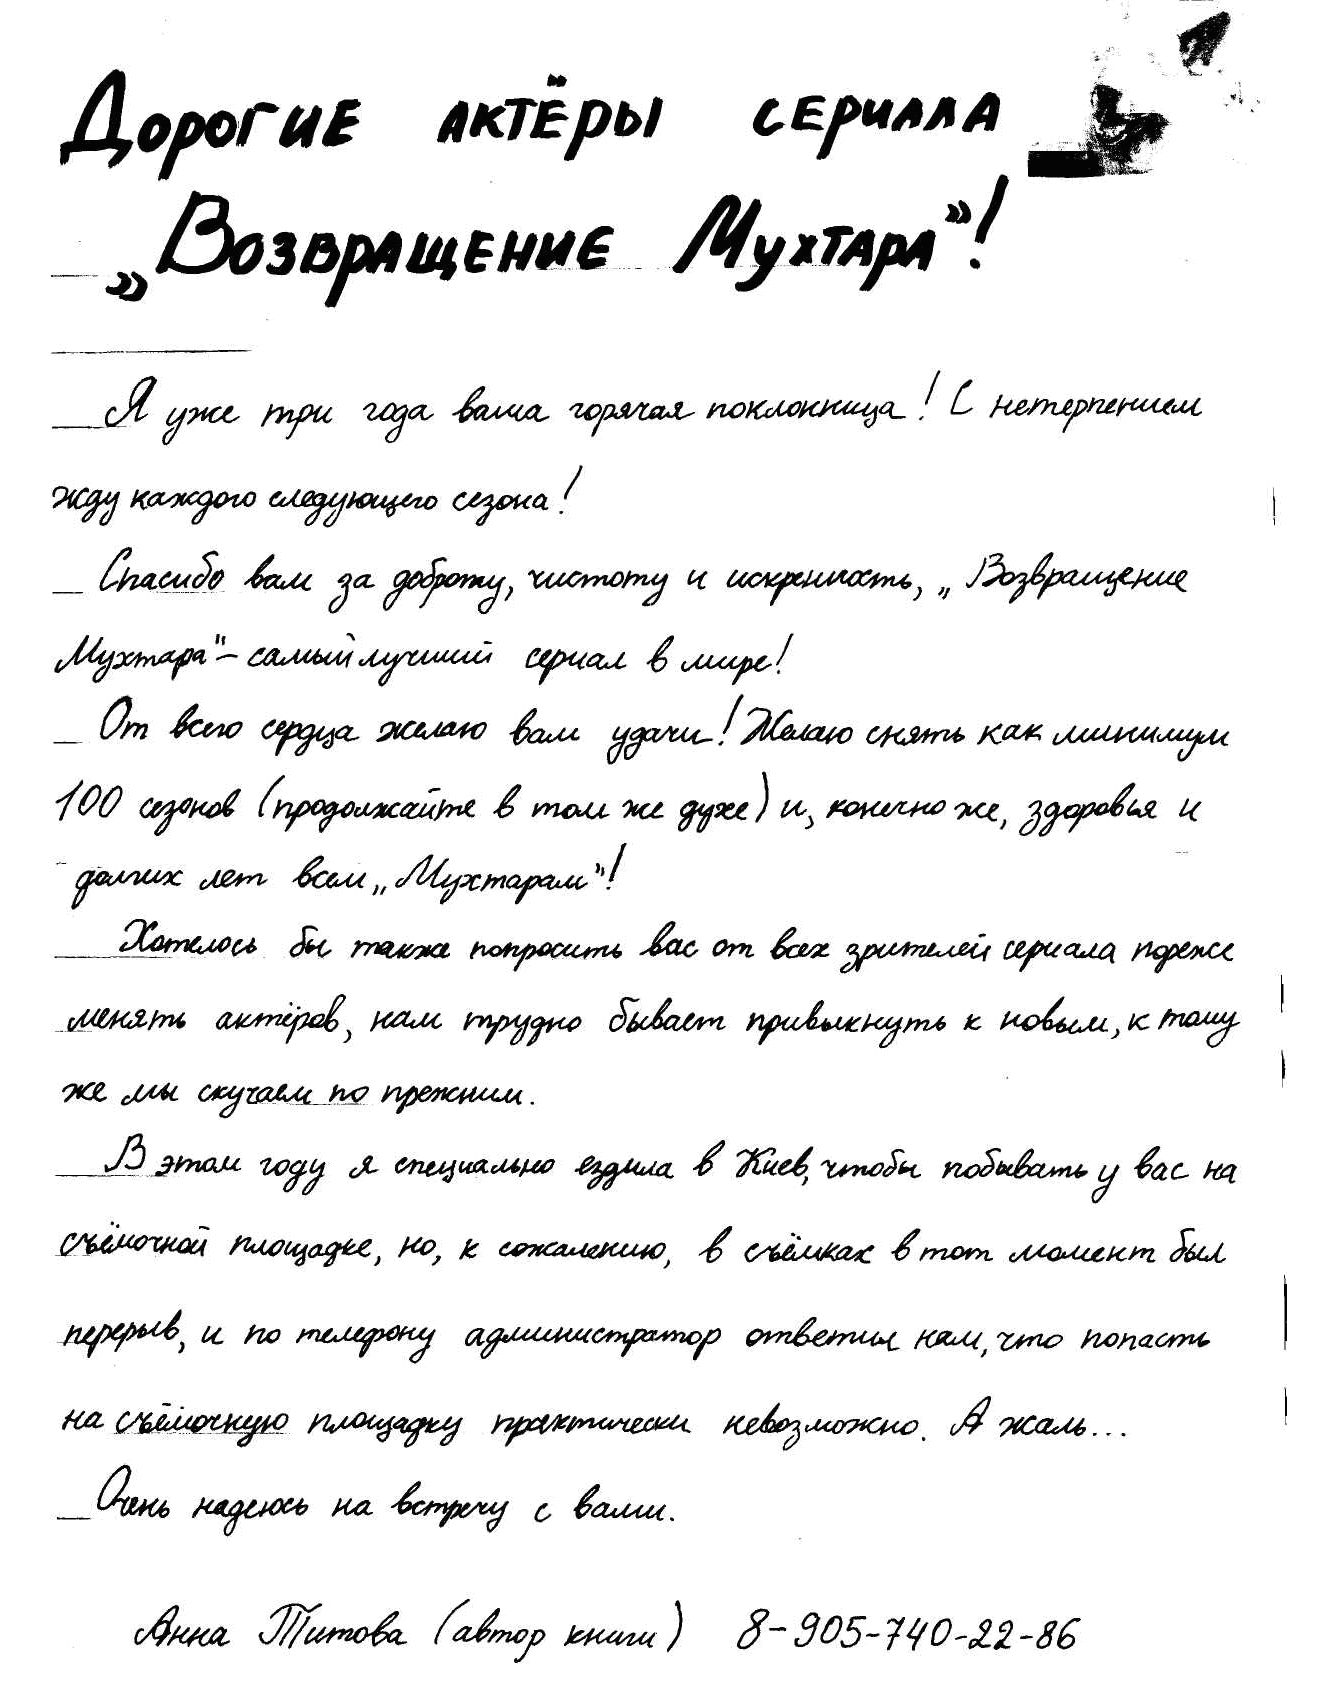 Дорогие актёры сериала
„Возвращение Мухтара"!
Я уже три года ваша горячая поклонница! С нетерпением
жду каждого следующего сезона!
Спасибо вам за доброту, чистоту и искренность, „Возвращение
Мухтара" – самый лучший сериал в мире!
От всего сердца желаю вам удачи! Желаю снять как минимум
100 сезонов (продолжайте в том же духе) и, конечно же, здоровья и
долгих лет всем „Мухтарам"!
Хотелось бы также попросить вас от всех зрителей сериала пореже
менять актёров, нам трудно бывает привыкнуть к новым, к тому
же мы скучаем по прежним.
В этом году я специально ездила в Киев, чтобы побывать у вас на
съёмочной площадке, но, к сожалению, в съёмках в тот момент был
перерыв, и по телефону администратор ответил нам, что попасть
на съёмочную площадку практически невозможно. А жаль...
Очень надеюсь на встречу с вами.
Анна Титова (автор книги) 8-905-740-22-86